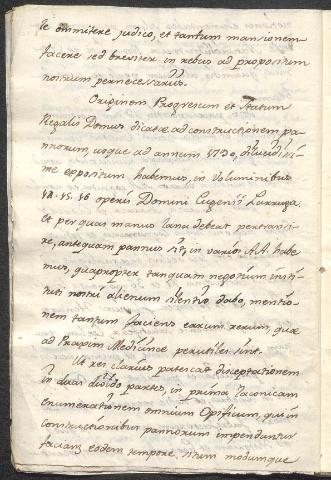 te ommitere judico, et tantum mansionem
facere sed breviter in rebus ad propositum
nostrum pernecessariis.
Originem Progresum et Statum
Regalis Domus dicatæ ad constructionem pa-
nnorum usque ad annum 1790, dilucidisi-
me expositum habemus, in Voluminibus
14. 15. 16 operis Domini Eugenii Larruga.
et per quas manus lana debeat pertransi-
re, antequam pannus sit, in variis A.A. habe-
mus, quapropter tanquam negotium insti-
tuti nostri alienum silentio dabo, mentio-
nem tantum faciens earum rerum, quæ
ad Praxim Medicinæ perutiles sint.
Ut res clarius patescat disceptationem
in duas divido partes, in prima laconicam
enumerationem omnium Opificum, qui in
constructionibus pannorum impenduntur
faciam eodem tempore, situm modumque